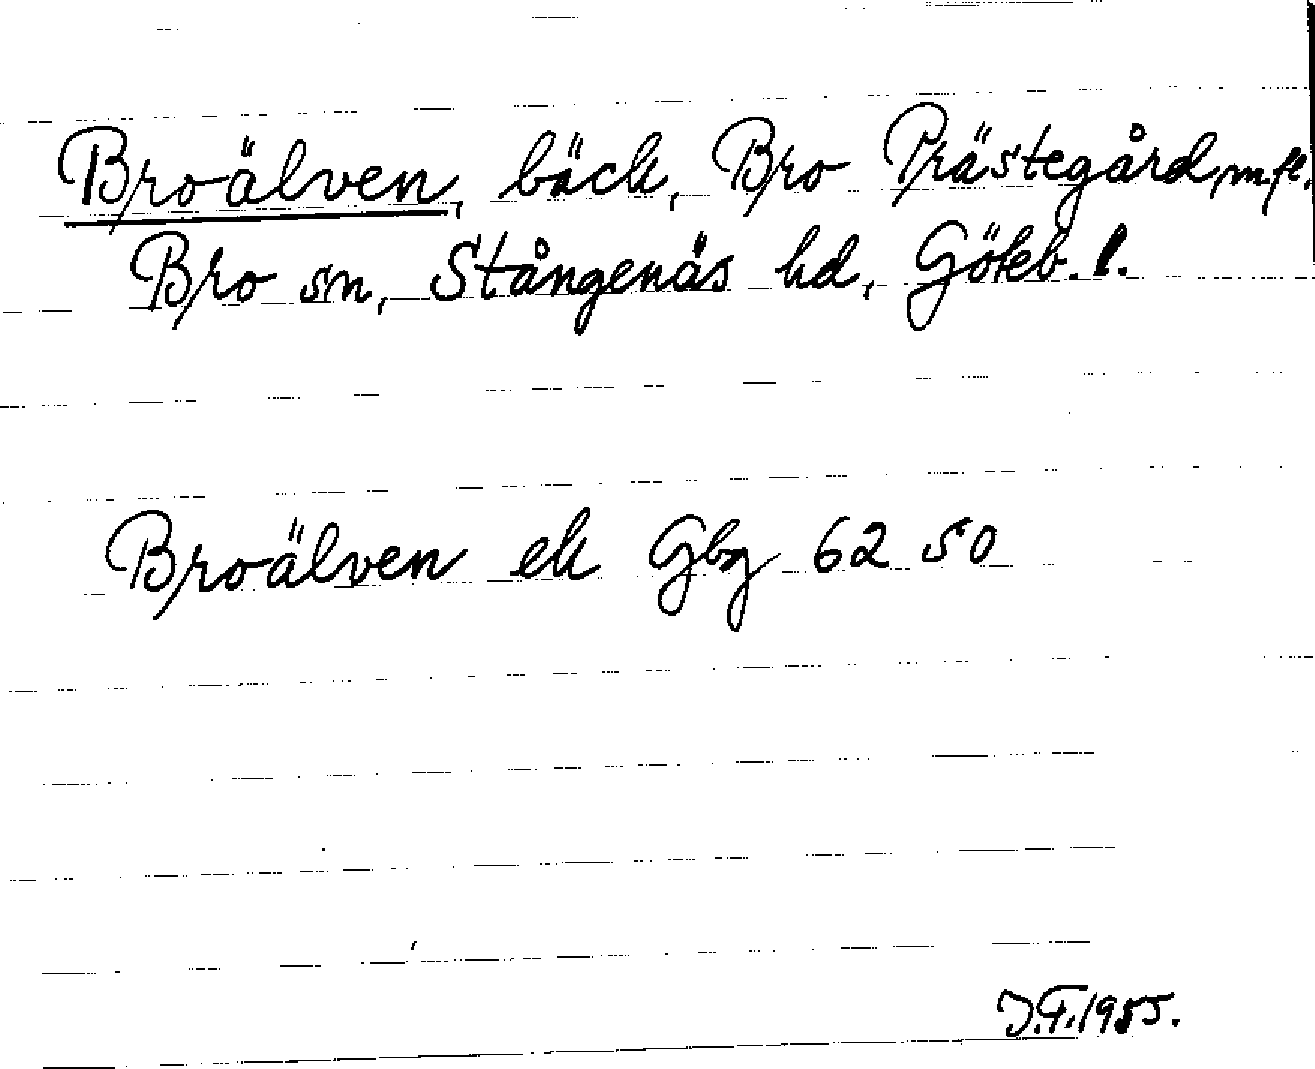 Broälven, bäck, Bro Prästegård, m.fl.
Bro sn, Stångenäs hd, Göteb. l.
Broälven ek Gbg 62 50
J.F. 1955.